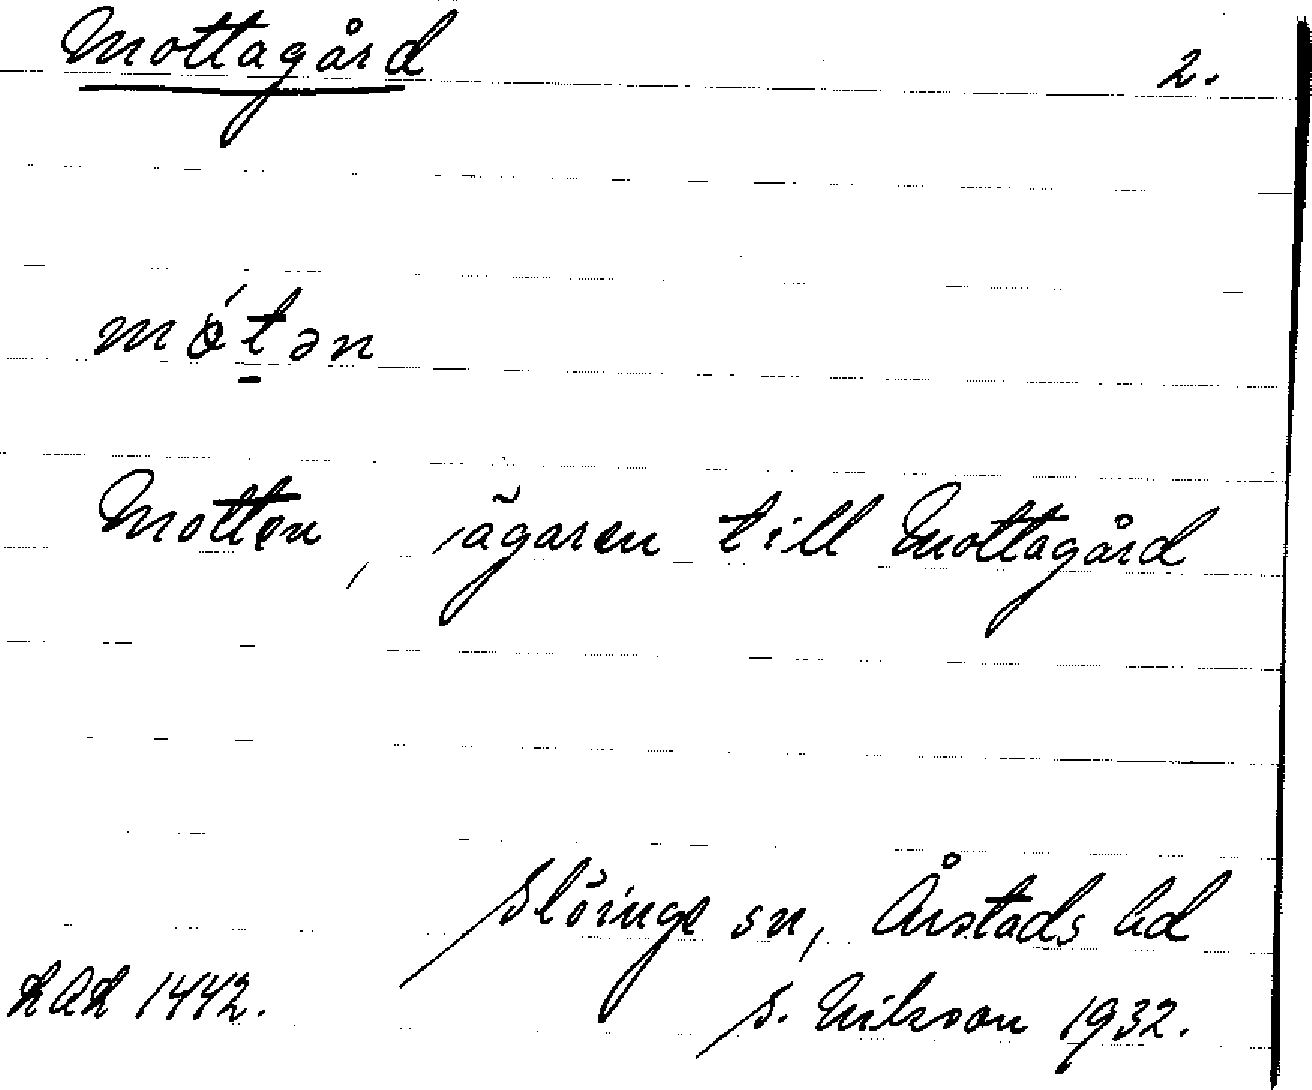 Mottagård 2.
mótən
Motten, ägaren till Mottagård
Slöinge sn, Årstads hd
LAL 1442. S. Nilsson 1932.